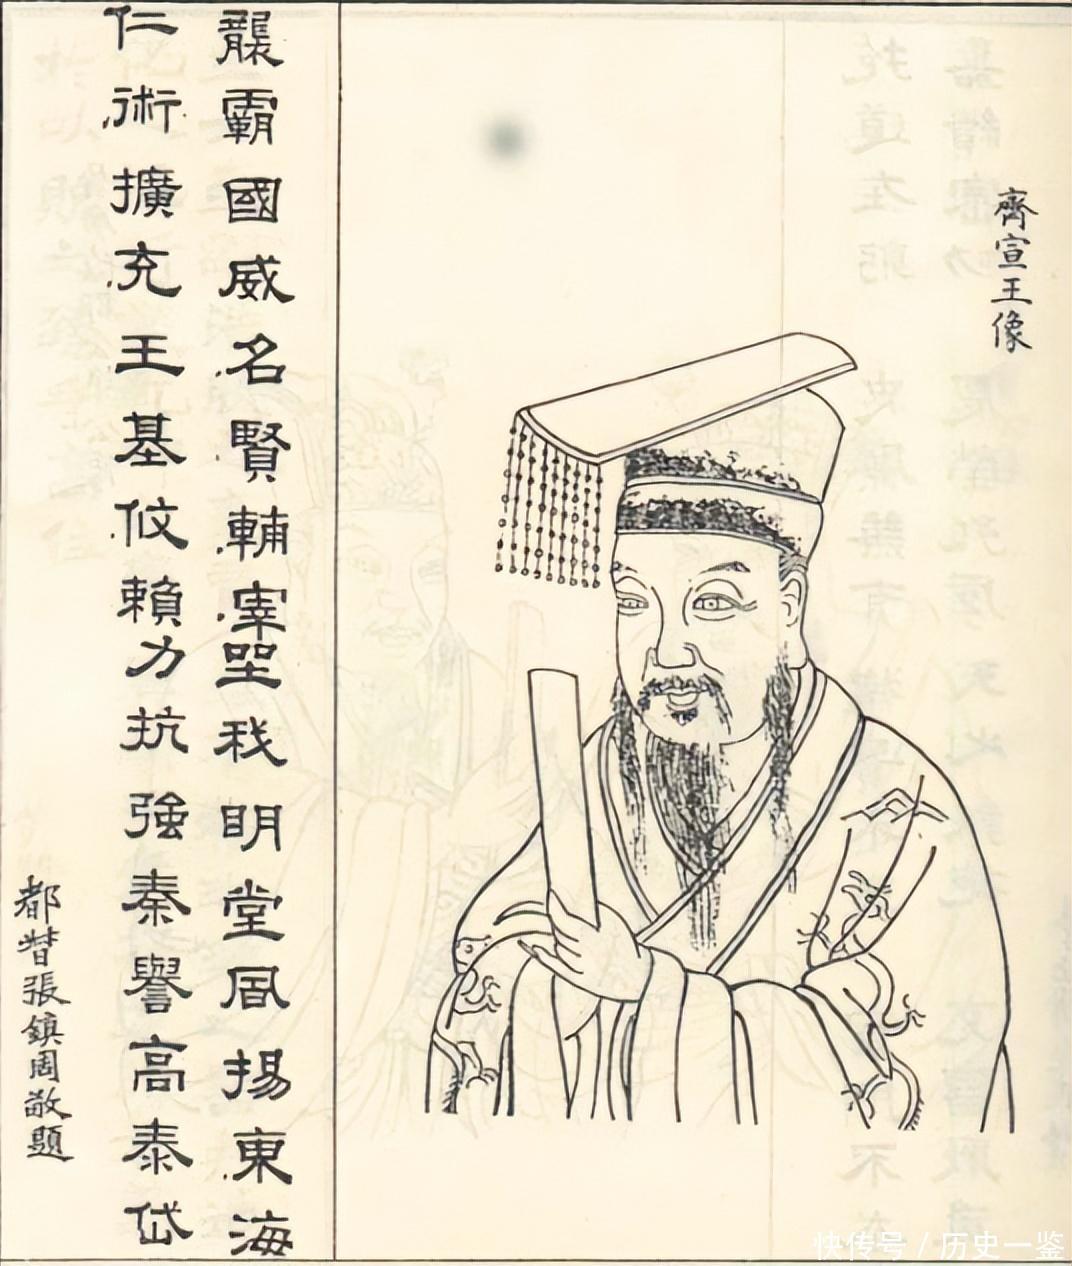 齊宣王像
襲霸國威名賢輔宰坐我明堂風揚東海
仁術擴充王基攸賴力抗強秦譽高泰岱
都督張鎮周敬題
快传号 / 历史一鉴